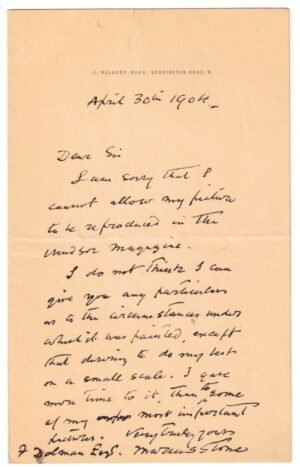 8, MELBURY ROAD, KENSINGTON ROAD, W.
April 30th 1904.
Dear Sir
I am sorry that I
cannot allow my picture
to be reproduced in the
Windsor Magazine.
I do not think I can
give you any particulars
as to the circumstances under
which it was painted, except
that desiring to do my best
on a small scale. I gave
more time to it, than to some
of my most important
pictures. Very truly yours
F Dolman Esq. Marcus Stone